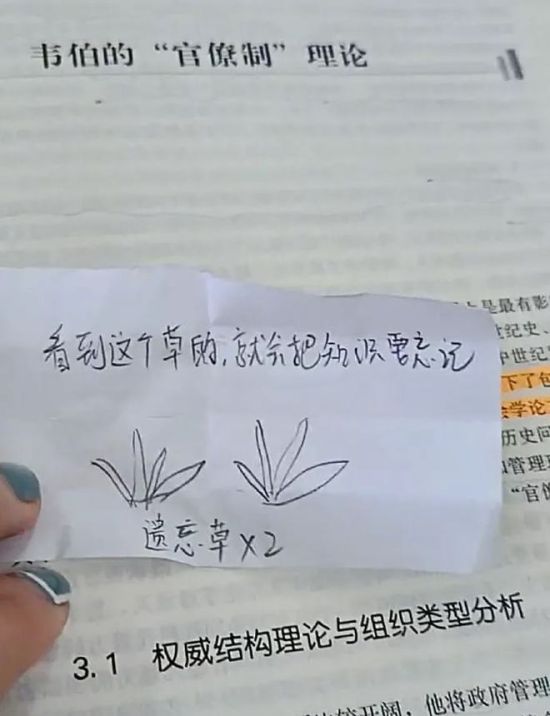 韦伯的“官僚制”理论
上是最有影
世纪史、
中世纪
下了包
会学论
历史问
和管理
“官僚
看到这个草的,就会把知识要忘记
遗忘草×2
3.1 权威结构理论与组织类型分析
较开阔，他将政府管理